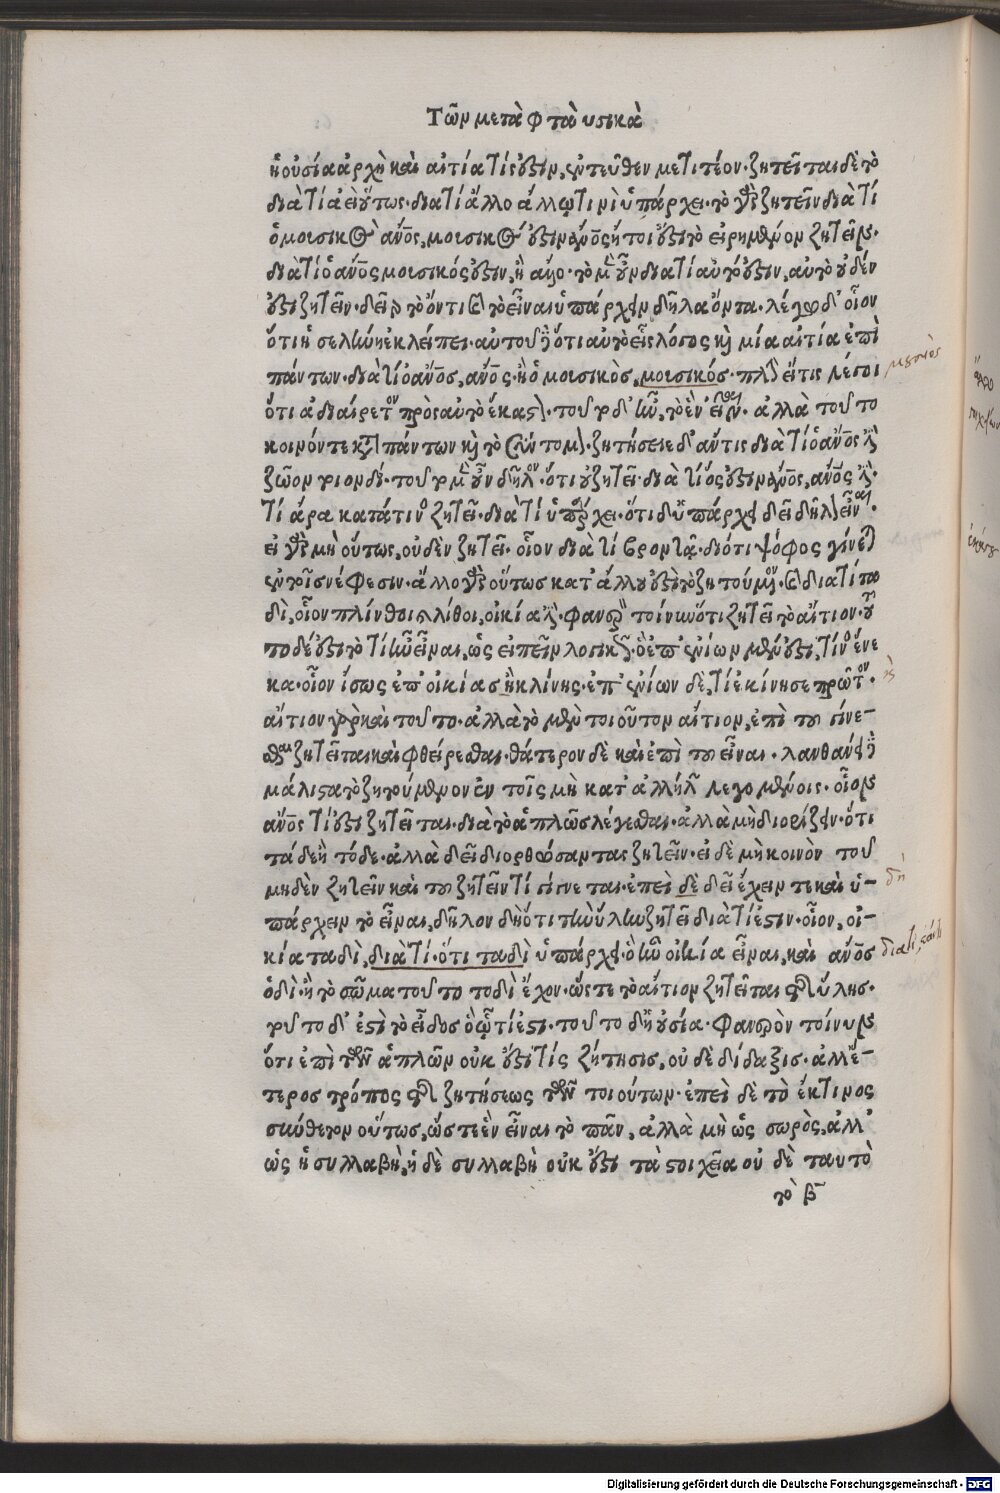 Τῶν μετὰ φ τὰ υσικὰ
ἡ οὐσία ἀρχὴ καὶ αἰτία τίς ἐστιν, ἐντεῦθεν μετιτέον· ζητεῖται δὲ τὸ
διὰ τί ἀεὶ οὕτως· διὰ τί ἄλλο ἄλλῳ τινὶ ὑπάρχει· τὸ γὰρ ζητεῖν διὰ τί
ὁ μουσικὸς ἄνος, μουσικὸς ἐστιν ἄνος ἤτοι ἐστὶ τὸ εἰρημένον ζητεῖν·
διὰ τί ὁ ἄνος μουσικός ἐστιν, ἢ ἄλλο· τὸ μὲν οὖν διὰ τί αὐτό ἐστιν, αὐτὸ οὐδέν
ἐστι ζητεῖν· δεῖ γὰρ τὸ ὅντι καὶ τὸ εἶναι ὑπάρχειν δῆλα ὄντα· λέγω δ' οἷον
ὅτι ἡ σελήνη ἐκλείπει· αὐτοῦ δὲ ὅτι αὐτὸ εἷς λόγος καὶ μία αἰτία ἐπὶ
πάντων· διὰ τί ὁ ἄνος, ἄνος· ἢ ὁ μουσικὸς, μουσικός· πλὴν εἴ τις λέγοι
ὅτι ἀδιαίρετον πρὸς αὐτὸ ἕκαστον· τοῦτο δ' ἦν, τὸ ἑν εἶναι· ἀλλὰ τοῦτο
κοινόν τε κατὰ πάντων καὶ τὸ σύντομον· ζητήσειε δ' ἄν τις διὰ τί ὁ ἄνος ἐστὶ
ζῶον τοιονδί· τοῦτο μὲν οὖν δῆλον· ὅτι οὐ ζητεῖ· διὰ τί ὅς ἐστιν ἄνος, ἄνος ἐστί·
τί ἄρα κατά τινος ζητεῖ· διὰ τί ὑπάρχει· ὅτι δ' ὑπάρχει δεῖ δῆλον εἶναι·
εἰ γὰρ μὴ οὕτως, οὐδὲν ζητεῖ· οἷον διὰ τί βροντᾷ· διότι ψόφος γίνεται
ἐν τοῖς νέφεσιν· ἄλλο γὰρ οὕτως κατ' ἄλλου ἐστὶ τὸ ζητούμενον· καὶ διατί τα
δὶ, οἷον πλίνθοι καὶ λίθοι, οἰκία ἐστί· φανερὸν τοίνυν ὅτι ζητεῖ τὸ αἴτιον· τοῦ
το δέ ἐστι τὸ τί ἦν εἶναι, ὡς εἰπεῖν λογικῶς· ὃ ἐπ' ἐνίων μέν ἐστι, τίνος ἕνε
κα· οἷον ἴσως ἐπ' οἰκίας ἢ κλίνης· ἐπ' ἐνίων δὲ, τί ἐκίνησε πρῶτον·
αἴτιον γὰρ καὶ τοῦτο· ἀλλὰ τὸ μὲν τοιοῦτον αἴτιον, ἐπὶ τοῦ γίνε–
σθαι ζητεῖται καὶ φθείρεσθαι· θάτερον δὲ καὶ ἐπὶ τοῦ εἶναι· λανθάνει δὲ
μάλιστα τὸ ζητούμενον ἐν τοῖς μὴ κατ' ἀλλήλων λεγομένοις· οἷον
ἄνος τί ἐστι ζητεῖται· διὰ τὸ ἁπλῶς λέγεσθαι· ἀλλὰ μὴ διορίζειν· ὅτι
τάδε ἢ τόδε· ἀλλὰ δεῖ διορθώσαντας ζητεῖν· εἰ δὲ μὴ κοινὸν τοῦ
μηδὲν ζητεῖν καὶ τοῦ ζητεῖν τὶ γίνεται· ἐπεὶ δὲ δεῖ ἔχειν τε καὶ ὑ–
πάρχειν τὸ εἶναι, δῆλον δὴ ὅτι τὴν ὕλην ζητεῖ διὰ τί ἐστιν· οἷον, οἰ–
κία ταδὶ, διὰ τί· ὅτι ταδὶ ὑπάρχει· ὃ ἦν οἰκία εἶναι, καὶ ἄνος
ὁδὶ· ἢ τὸ σῶμα τοῦτο τοδὶ ἔχον· ὥστε τὸ αἴτιον ζητεῖται τῆς ὕλης·
τοῦτο δ' ἐστὶ τὸ εἶδος ὃ ᾧ τί ἐστι· τοῦτο δὴ οὐσία· φανερὸν τοίνυν
ὅτι ἐπὶ τῶν ἁπλῶν οὐκ ἔστι τίς ζήτησις, οὐδὲ δίδαξις· ἀλλ' ἕ–
τερος τρόπος τῆς ζητήσεως τῶν τοιούτων· ἐπεὶ δὲ τὸ ἐκ τινος
σύνθετον οὕτως, ὥστε ἓν εἶναι τὸ πᾶν, ἀλλὰ μὴ ὡς σωρὸς, ἀλλ'
ὡς ἡ συλλαβὴ, ἡ δὲ συλλαβὴ οὐκ ἔστι τὰ στοιχεῖα οὐδὲ ταυτὸ
τὸ β
δὴ
διατί
Digitalisierung gefördert durch die Deutsche Forschungsgemeinschaft - DFG